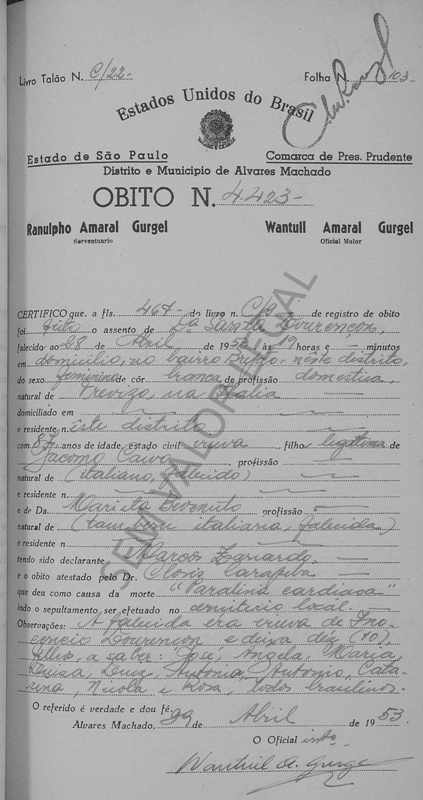 Livro Talão N. C/22-
Folha N. 103-
Estados Unidos do Brasil
Estado de São Paulo
Comarca de Pres. Prudente
Distrito e Municipio de Alvares Machado
OBITO N. 4.423-
Ranulpho Amaral Gurgel
Wantuil Amaral Gurgel
Serventuario
Oficial Maior
CERTIFICO que, a fls. 467- do livro n. C/9 de registro de obito
foi feito o assento de Da. Lourençon,
falecido ao 28 de Abril de 195 às 19 horas e — minutos
em domicilio, no bairro neste distrito,
do sexo feminino de côr branca de profissão domestica,
natural de Trevizo, na Italia
domiciliado em
e residente n. este distrito
com 87 anos de idade, estado civil viuva filha legitima de
Jacomo profissão
natural de (italiano, falecido)
e residente n
e de Da. Marieta profissão
natural de (tambem italiana, falecida)
e residente n
tendo sido declarante Marcos
e o obito atestado pelo Dr. Clovis
que deu como causa da morte "Paralisia cardiaca"
indo o sepultamento ser efetuado no cemiterio local.
Observações: A falecida era viuva de
Lourençon, e deixa dez (10)
filhos, a saber: José, Angela, Maria,
Luiza, Luiz, Antonia, Antonio, Cata-
rina, Nicola e Rosa, todos brasileiros.
O referido é verdade e dou fé.
Alvares Machado, 29 de Abril de 1953.
O Oficial
Wantuil A. Gurgel
SEM VALOR LEGAL